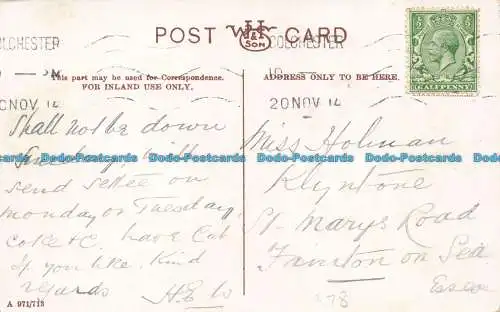 POST CARD
WHS & SON
COLCHESTER
COLCHESTER
This part may be used for Correspondence.
FOR INLAND USE ONLY.
ADDRESS ONLY TO BE HERE.
HALFPENNY
20 NOV 12
Shall not be down
Sunday will
send settee on
monday or Tuesday,
coke &c. have cut
if you like. Kind
regards H.E.W
Miss Holman
Klyntone
St. Marys Road
Frinton on Sea
Essex
278
A 971/713
Dodo-Postcards-Ltd Dodo-Postcards-Ltd Dodo-Postcards-Ltd Dodo-Postcards-Ltd